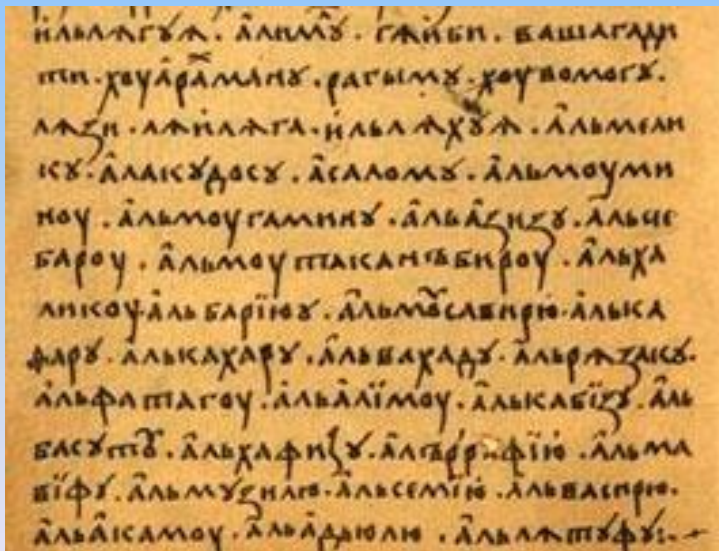 ильлягуя · алимоу · гяиби · вашагади
ти · хоуараману · рагыму · хоувомогу ·
лязи · ляиляга · ильляхуя · альмели
ку · алакудосу · асаломꙋ · альмоуми
ноу · альмоугаминꙋ · альазизꙋ · альче
бароу · альмоутаканъбироу · альха
ликоу · альбарїюꙋ · альмꙋсавирю · алька
фару · алькахару · альвахаду · альрязаку ·
альфатагоу · альалїмоу · алькабїзꙋ · аль
басутꙋ · альхафизꙋ · фїю · альма
вїфꙋ · альмꙋзилю · альсемїю · альвасирю ·
альакамоу · альадьюлю · альлятуфꙋ :·